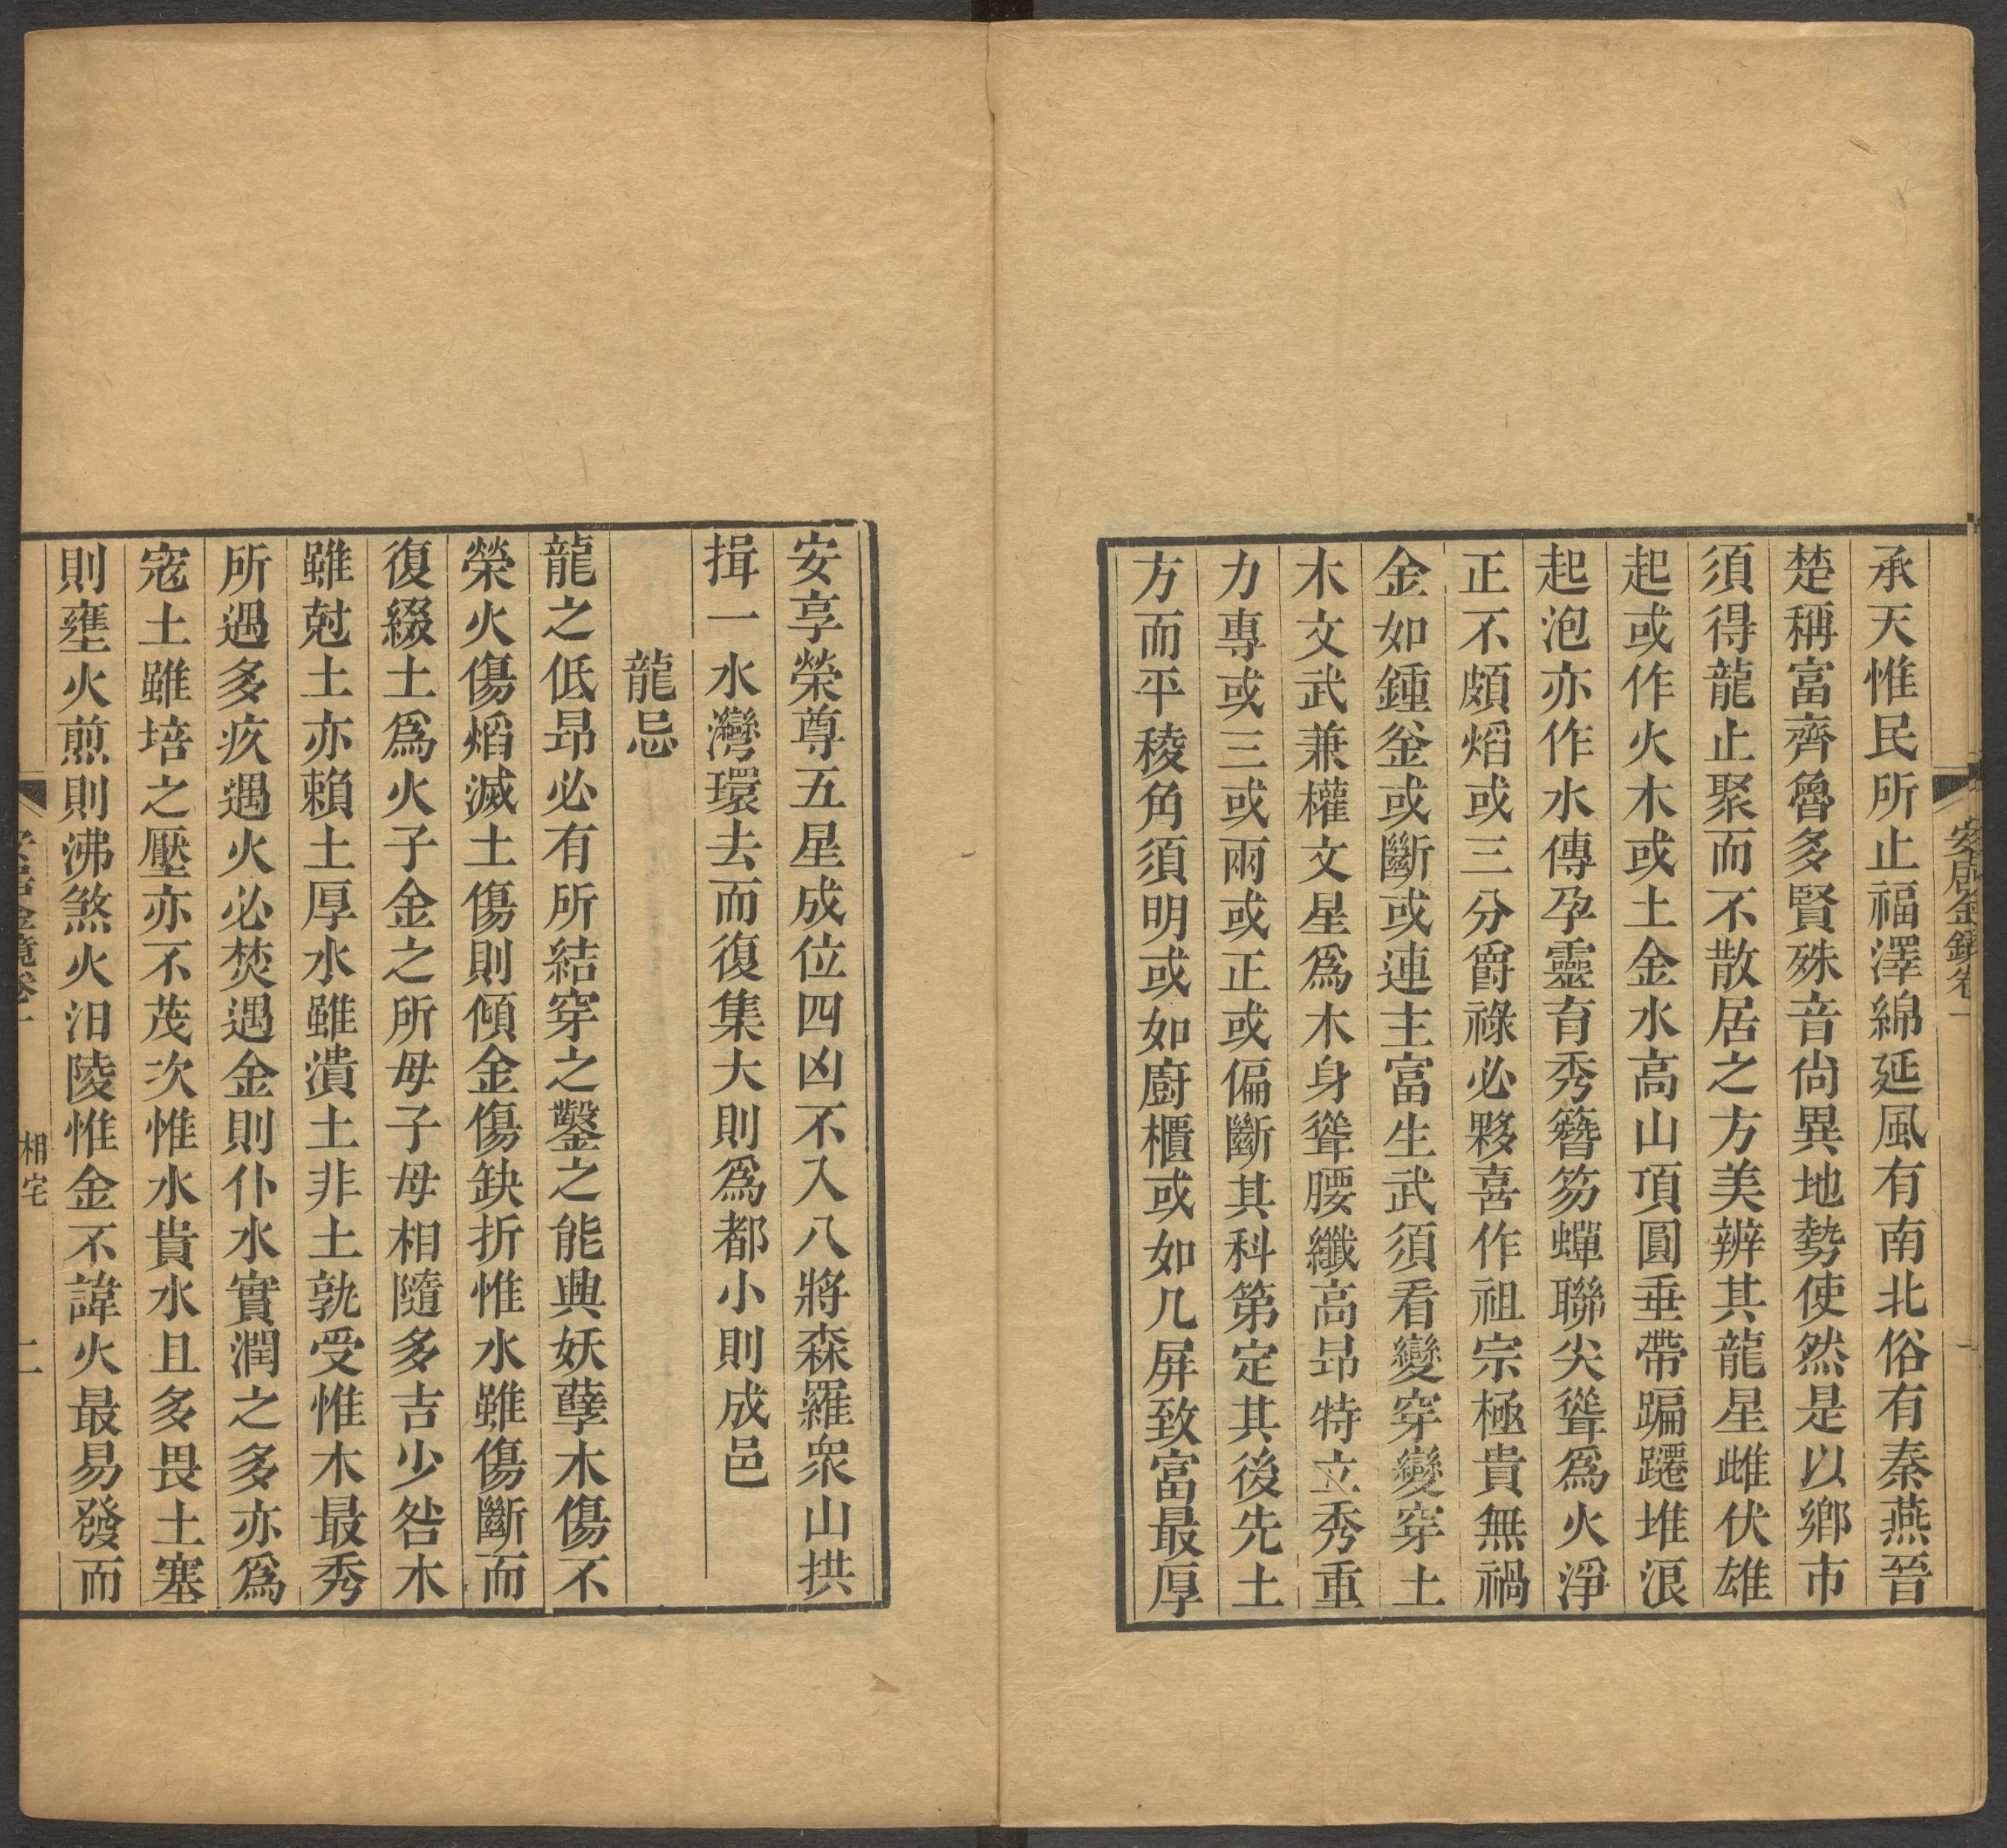 安居金鏡卷一
一
承天惟民所止福澤綿延風有南北俗有秦燕晉
楚稱富齊魯多賢殊音尙異地勢使然是以鄉市
須得龍止聚而不散居之方美辨其龍星雌伏雄
起或作火木或土金水高山頂圓垂帶蹁躚堆浪
起泡亦作水傳孕靈育秀簪笏蟬聯尖聳爲火淨
正不頗熖或三分爵祿必夥喜作祖宗極貴無禍
金如鍾釜或斷或連主富生武須看變穿變穿土
木文武兼權文星爲木身聳腰纖高昻特立秀重
力專或三或兩或正或偏斷其科第定其後先土
方而平稜角須明或如廚櫃或如几屏致富最厚
安享榮尊五星成位四凶不入八將森羅衆山拱
揖一水灣環去而復集大則爲都小則成邑
龍忌
龍之低昻必有所結穿之鑿之能興妖孽木傷不
榮火傷熖滅土傷則傾金傷缺折惟水雖傷斷而
復綴土爲火子金之所母子母相隨多吉少咎木
雖尅土亦賴土厚水雖潰土非土孰受惟木最秀
所遇多疚遇火必焚遇金則仆水實潤之多亦爲
寇土雖培之壓亦不茂次惟水貴水且多畏土塞
則壅火煎則沸煞火汨陵惟金不諱火最易發而
安居金鏡卷一
相宅
二